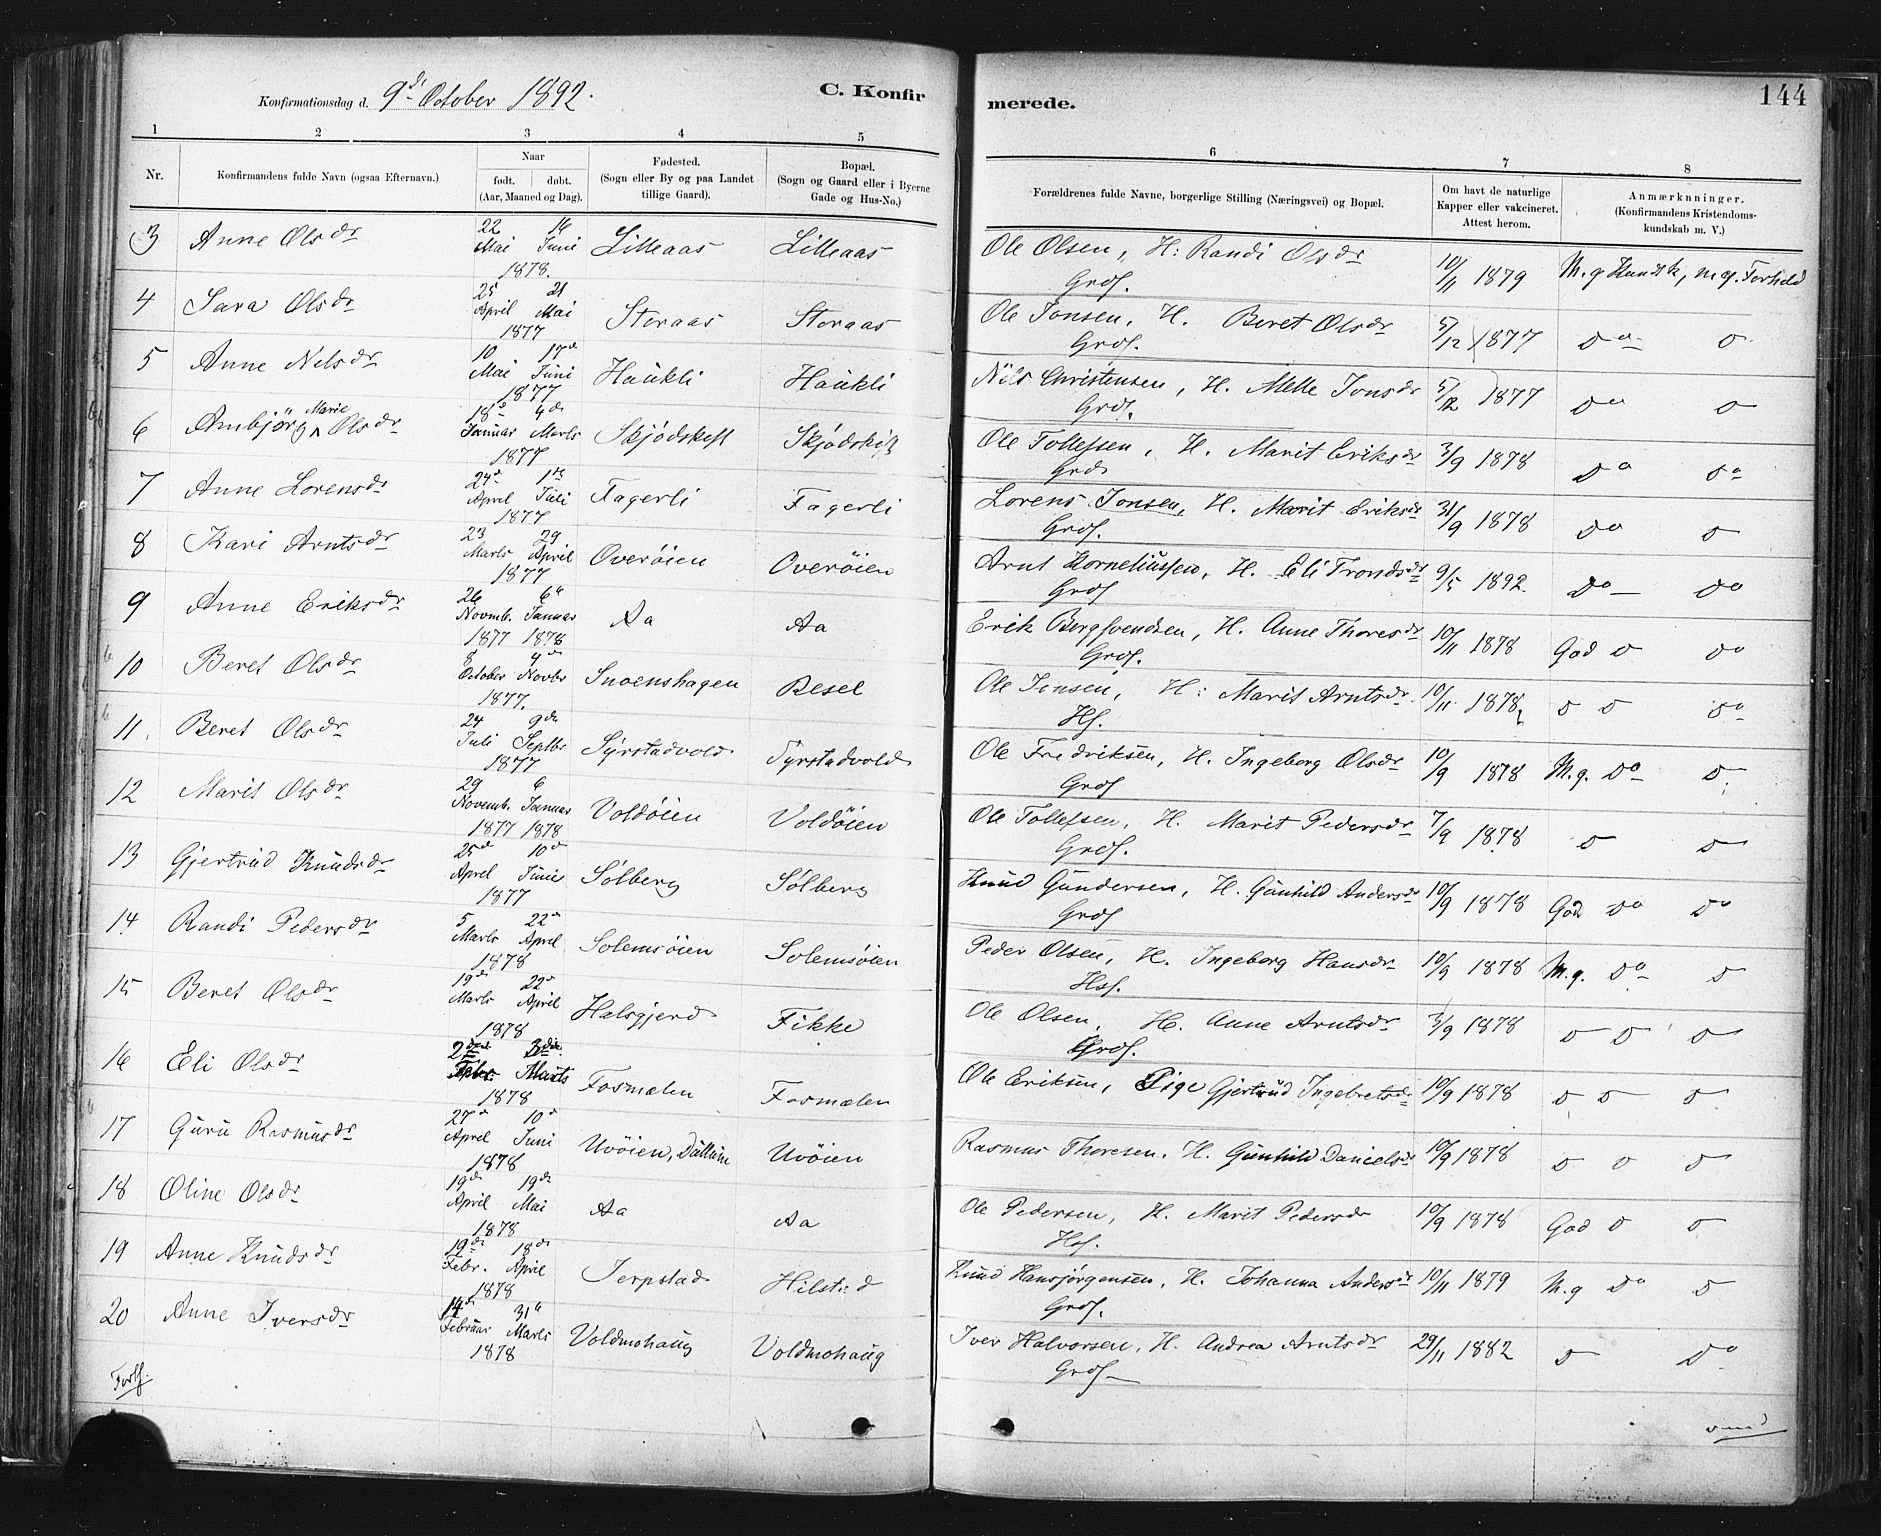 Konfirmationsdag d. 9de October 1892.
C. Konfirmerede.
144
1 2 3 4 5 6 7 8
Nr.
Konfirmandens fulde Navn (ogsaa Efternavn).
Naar
født. døbt.
(Aar, Maaned og Dag).
Fødested.
(Sogn eller By og paa Landet
tillige Gaard).
Bopæl.
(Sogn og Gaard eller i Byerne
Gade og Hus-No.)
Forældrenes fulde Navne, borgerlige Stilling (Næringsvei) og Bopæl.
Om havt de naturlige
Kapper eller vakcineret.
Attest herom.
Anmærknninger.
(Konfirmandens Kristendoms-
kundskab m. V.)
3 Anne Olsdr 22 Mai 16 Juni 1878. Lilleaas Lilleaas Ole Olsen, H: Randi Olsdr Grdf. 10/11 1879 M. g Kundsk, m. g. Forhold
4 Sara Olsdr 25 April 21 Mai 1877 Storaas Storaas Ole Jonsen, H. Beret Olsdr Grdf. 5/12 1877 do o
5 Anne Nilsdr 10 Mai 17d Juni 1877 Haukli Haukli Nils Christensen, H. Melle Jonsdr Grdf. 5/12 1877 do o
6 Ambjörg Marie Olsdr 18d Januar 4de Marts 1877 Skjödskift Skjödskift Ole Tollefsen, H. Marit Eriksdr Grd 3/9 1878 do do
7 Anne Lorensdr 24d April 1ste Juli 1877 Fagerli Fagerli Lorens Jonsen, H. Marit Eriksdr Grdf. 31/9 1878 do o
8 Kari Arntsdr 23 Marts 29 April 1877 Overøien Overøien Arnt Korneliussen, H. Eli Trondsdr Grdf 9/5 1892. do do
9 Anne Eriksdr 26 Novmb. 1877 6te Januar 1878 Aa Aa Erik Bergsvendsen, H. Anne Thoresdr Grdf. 10/11 1878 God o do
10 Beret Olsdr 8 October 4de Novbr 1877. Snoenshagen Resel Ole Jonsen, H: Marit Arntsdr Hf. 10/11 1878 o o do
11. Beret Olsdr 24 Juli 9de Septbr 1877 Syrstadvold Syrstadvold Ole Fredriksen, H. Ingeborg Olsdr Grdf 10/9 1878 M. g. do o
12 Marit Olsdr 29 Novemb. 1877 6 Januar 1878 Voldøien Voldøien Ole Tollefsen, H. Marit Pedersdr Grdf. 7/9 1878 o o
13 Gjertrud Knudsdr 25d April 10d Juni 1877 Sølberg Sølberg Knud Gundersen, H. Gunhild Andersdr Grdf 10/9 1878 God do do
14 Randi Pedersdr 5 Marts 22d April 1878 Solemsøien Solemsøien Peder Olsen, H. Ingeborg Hansdr Hsf. 10/9 1878 M. g. do o
15 Beret Olsdr 19de Marts 22d April 1878 Halsgjerd Fikke Ole Olsen, H. Anne Arntsdr Grdf. 3/9 1878 o o o
16 Eli Olsdr 2den Febr. 3die Marts 1878 Fosmælen Fosmælen Ole Eriksen, Pige Gjertrud Ingebretsdr 10/9 1878 o o o
17 Guru Rasmusdr 27d April 10d Juni 1878 Uvøien, Dallum Uvøien Rasmus Thoresen, H. Gunhild Danielsdr 10/9 1878 o o o
18 Oline Olsdr 19de April 19de Mai 1878 Aa Aa Ole Pedersen, H. Marit Pedersdr Hsf. 10/9 1878 God o o
19 Anne Knudsdr 19de Febr. 18de April 1878 Jerpstad Hilstad Knud Hansjørgensen, H. Johanna Andersdr Grdf. 10/11 1879 M. g do o
20 Anne Iversdr 14d Februar 31te Marts 1878 Voldmohaug Voldmohaug Iver Halvorsen, H. Andrea Arntsdr Grdf 29/11 1882 o do
Fortf.
vend